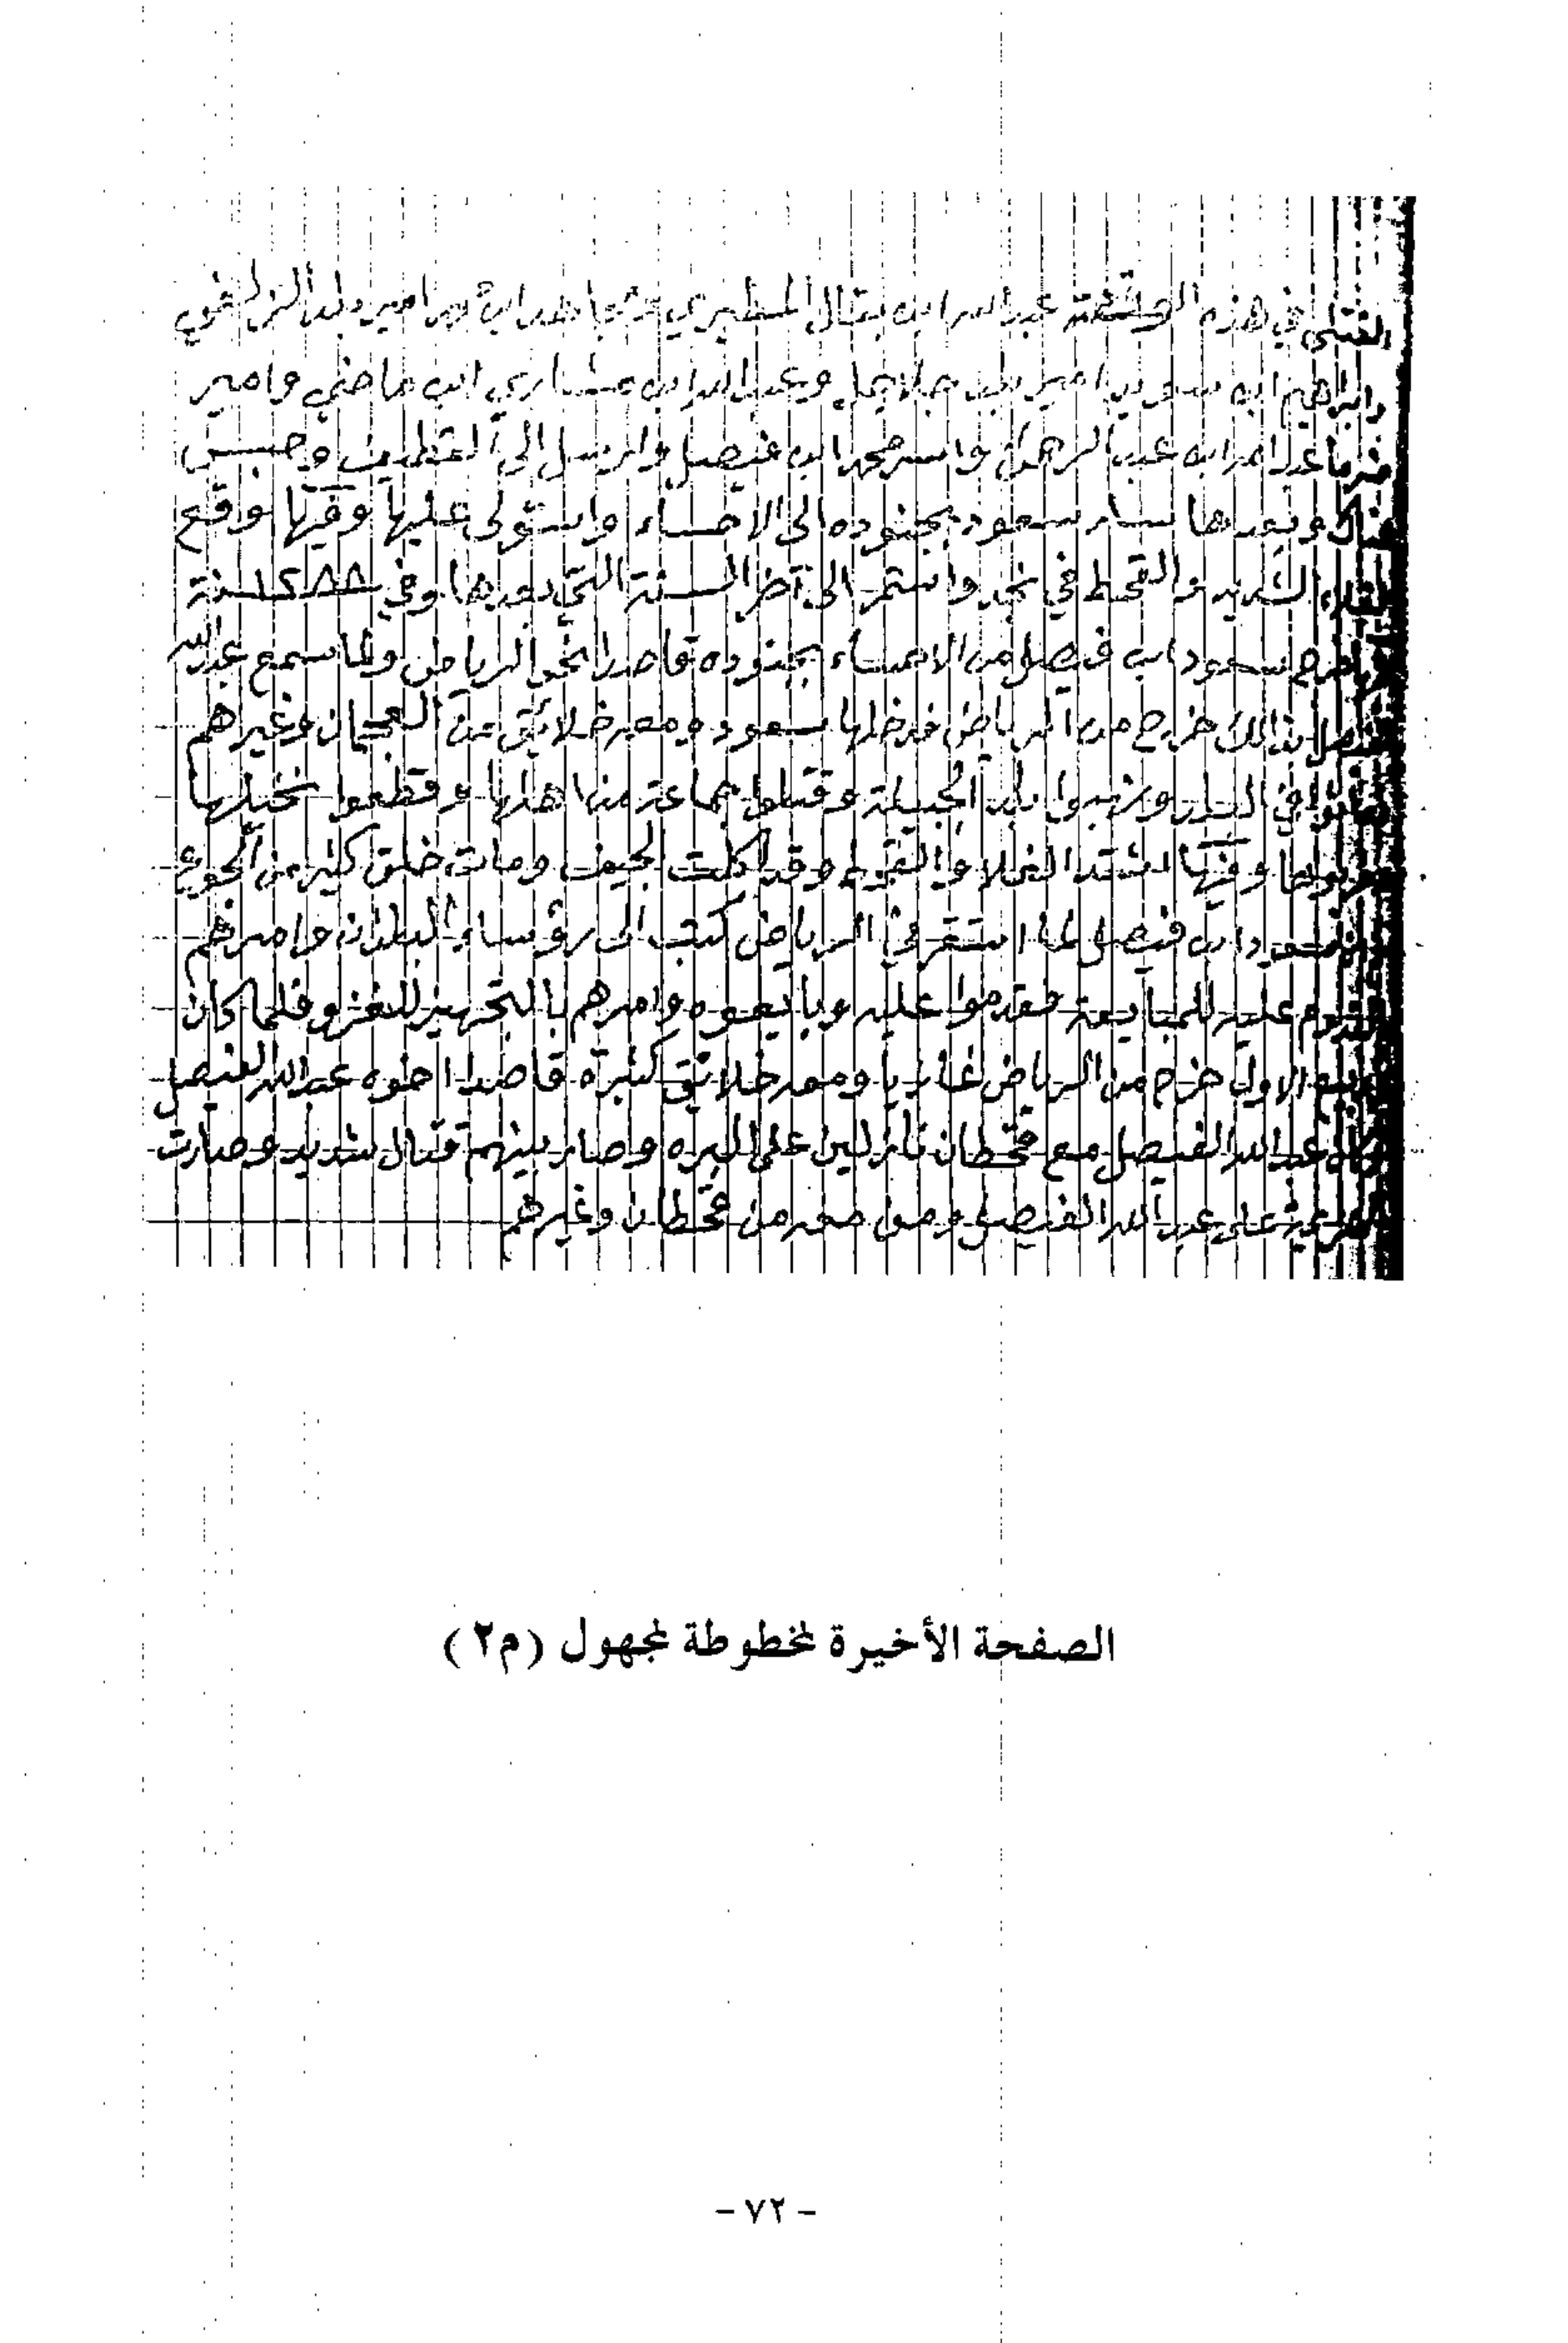 القتلى في هذه الوقعة عبدالله ابن بتال المطيري ومجاهد امير بلد الزلفي
وابراهيم ابن سويد امير بلد جلاجل وعبدالله ابن مشاري ابن ماضي وامير
ضرما عبدالله ابن عبدالرحمن واسر محمد ابن فيصل وارسل الى القطيف وحبس
هناك وبعدها سار سعود بجنوده الى الاحساء واستولى عليها وفيها وقع
الغلاء الشديد والقحط في نجد واستمر الى آخر السنة التي بعدها وفي ١٢٨٨ سنة
خرج سعود ابن فيصل من الاحساء بجنوده قاصدا نحو الرياض ولما سمع عبدالله
بذالك خرج من الرياض فدخلها سعود ومعه خلائق من العجمان وغيرهم
في البلد ونهبوا بلد الجبيلة وقتلوا جماعة من اهلها وقطعوا نخيلها
وفيها اشتد الغلا والقحط وقد اكلت الجيف ومات خلق كثير من الجوع
سعود ابن فيصل لما استقر في الرياض كتب الى رؤساء البلدان وامرهم
بالقدوم عليه للمبايعة فقدموا عليه وبايعوه وامرهم بالتجهيز للغزو فلما كان
ربيع الاول خرج من الرياض غازيا ومعه خلائق كثيرة قاصدا اخوه عبدالله الفيصل
وكان عبدالله الفيصل مع قحطان نازلين على البره وصار بينهم قتال شديد وصارت
الهزيمة على عبدالله الفيصل ومن معه من قحطان وغيرهم
الصفحة الأخيرة لمخطوطة لمجهول (م٢)
- ٧٢ -